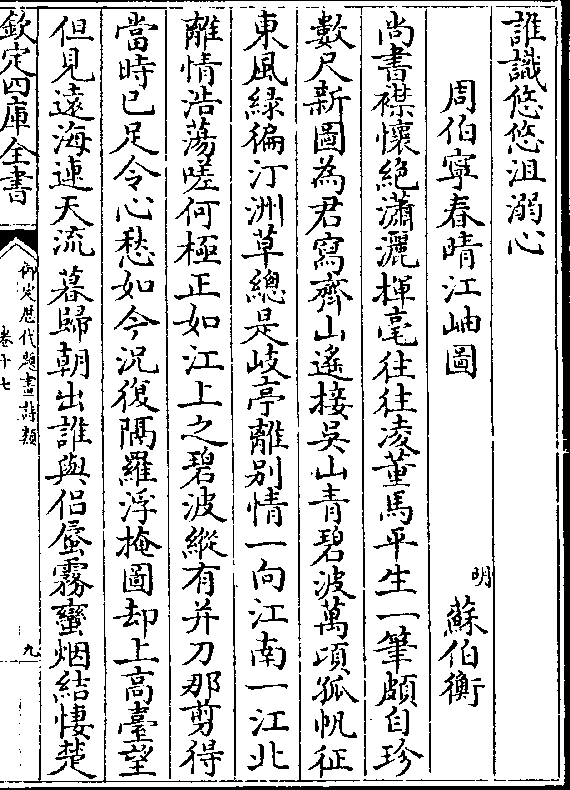 誰識悠悠沮溺心
周伯寧春晴江岫圖
明 蘇伯衡
尚書襟懷絶瀟灑揮毫往往凌董馬平生一筆頗自珍
數尺新圖為君寫齊山遙接吳山青碧波萬頃孤帆征
東風緑徧汀洲草總是岐亭離别情一向江南一江北
離情浩蕩嗟何極正如江上之碧波縱有并刀那剪得
當時已足令心愁如今況復隔羅浮掩圖却上高臺望
但見遠海連天流暮歸朝出誰與侣蜑霧蠻烟結悽楚
欽定四庫全書
御定歴代題畫詩類
卷十七
九